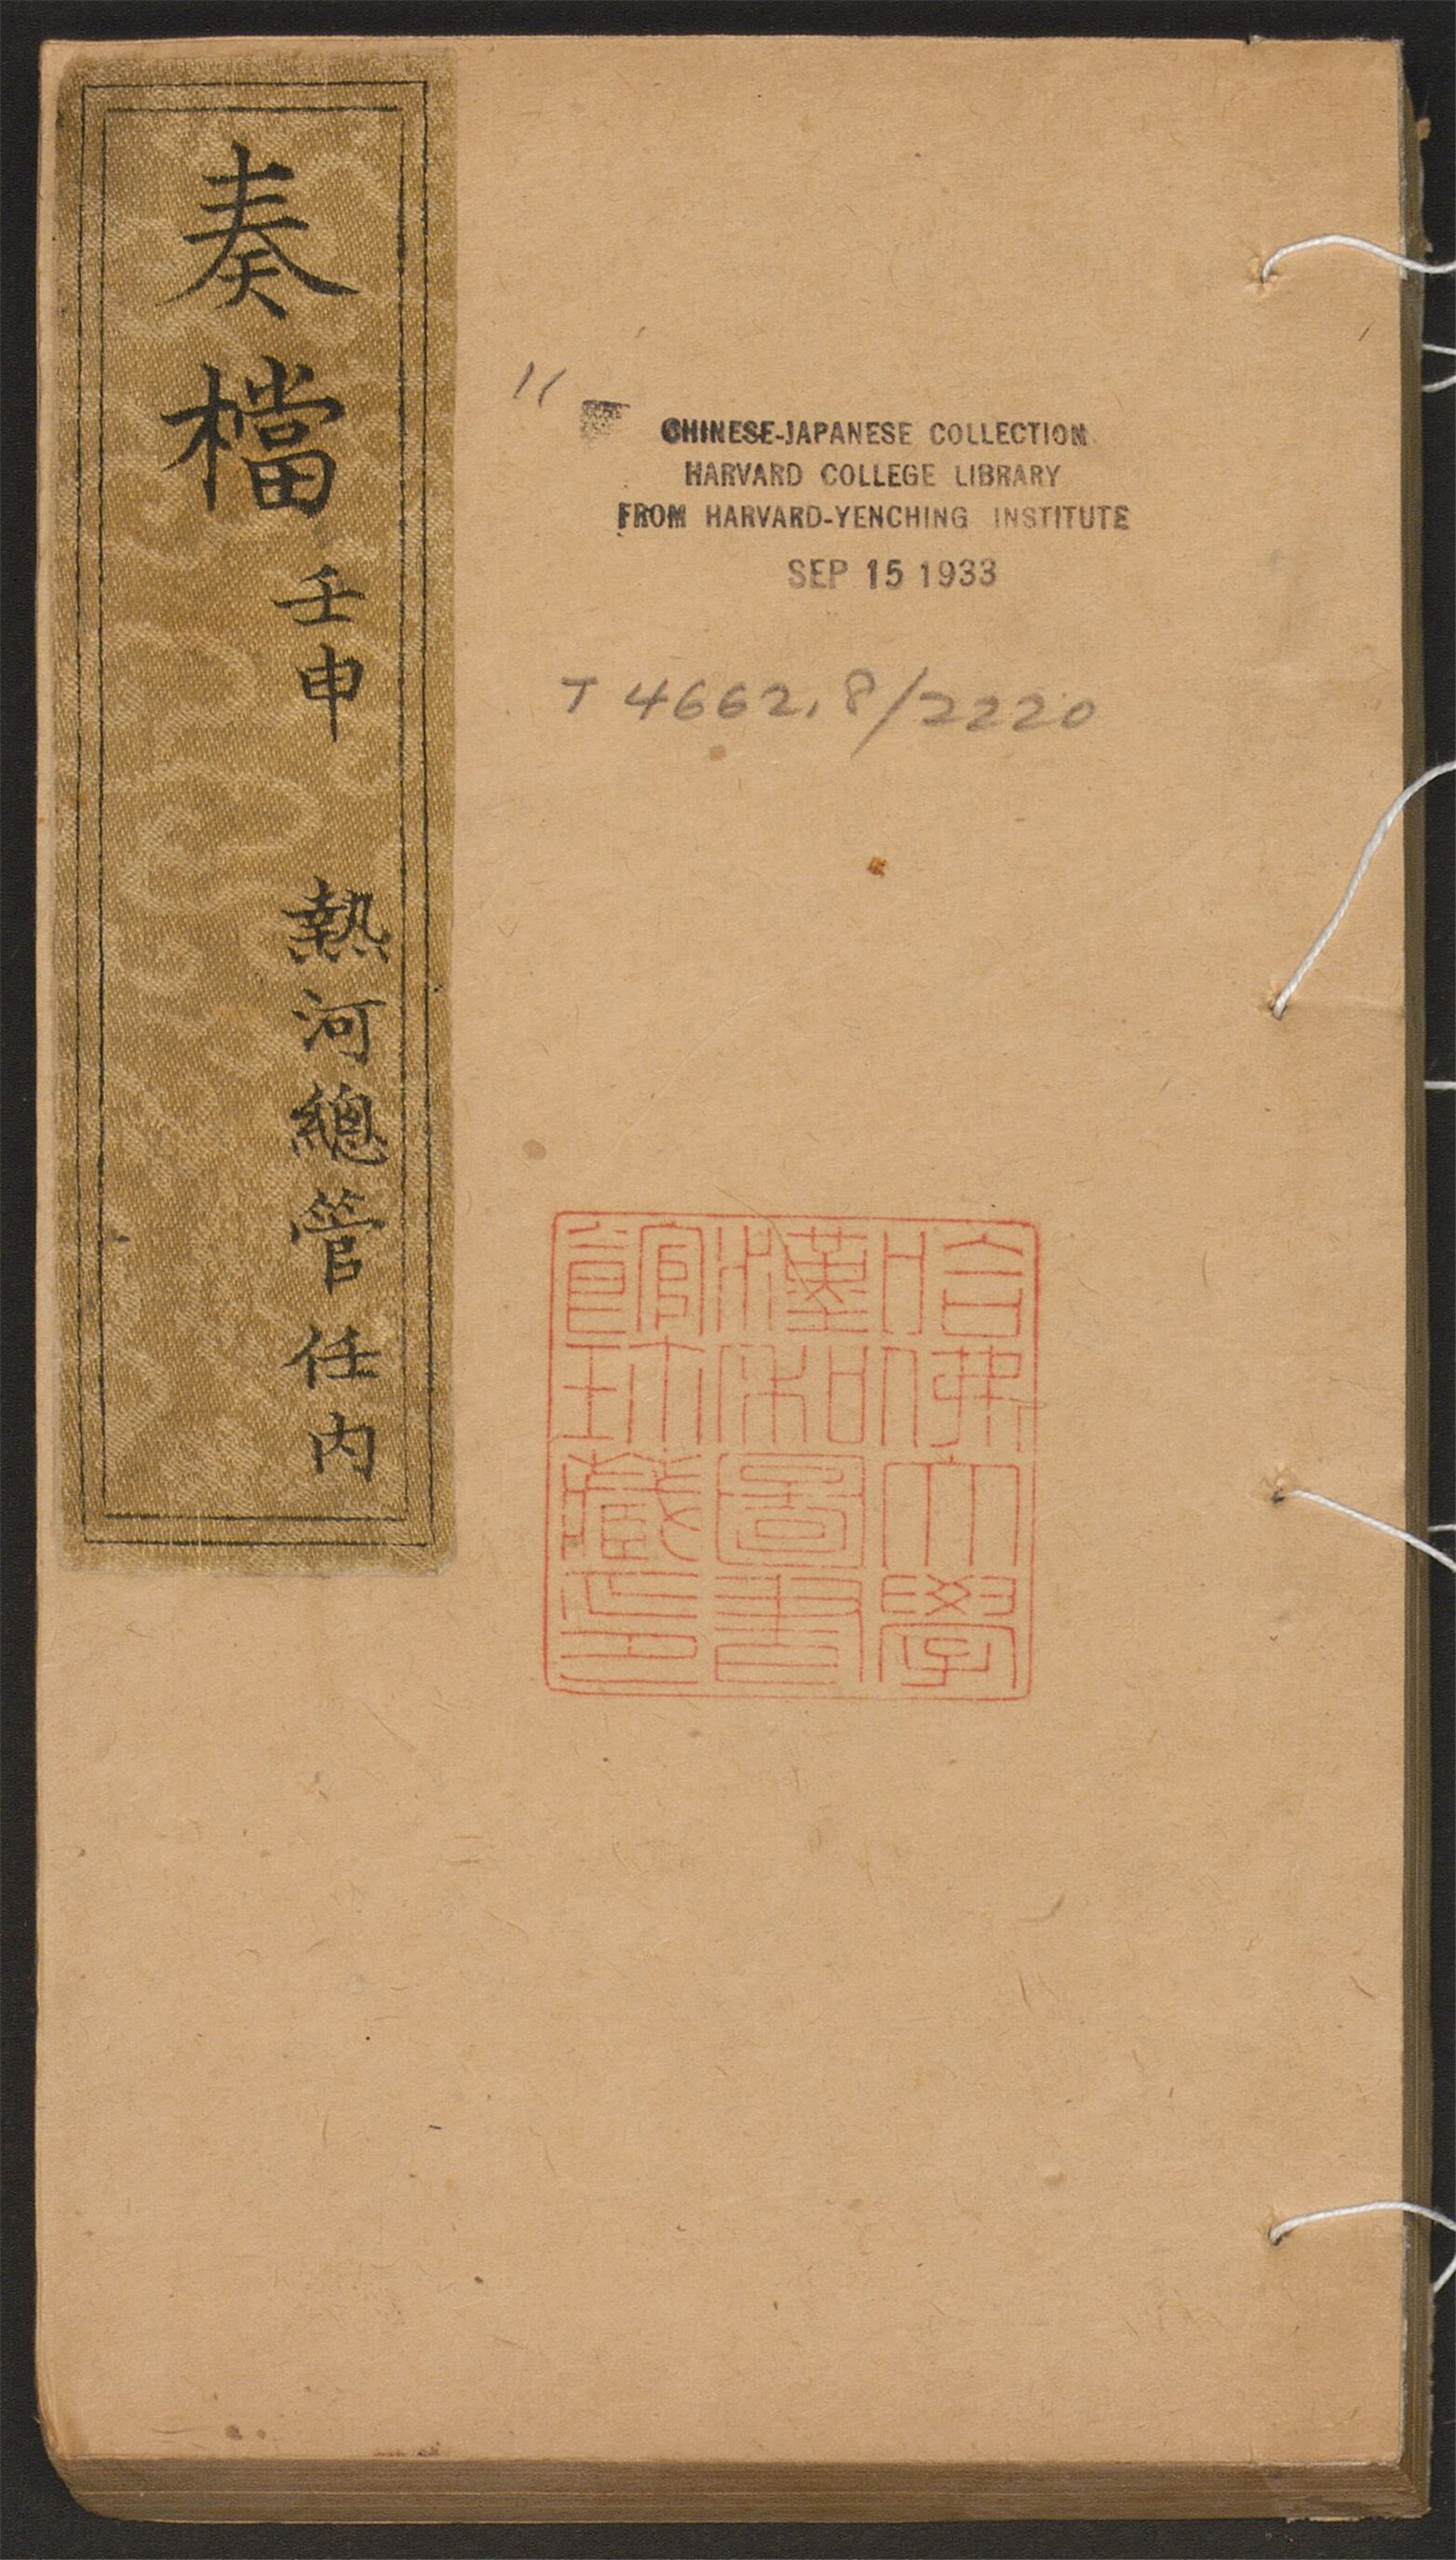 奏檔 壬申 熱河總管任內
CHINESE-JAPANESE COLLECTION
HARVARD COLLEGE LIBRARY
FROM HARVARD-YENCHING INSTITUTE
SEP 15 1933
T 4662.8/2220
哈佛大學
漢和圖書
館珍藏印